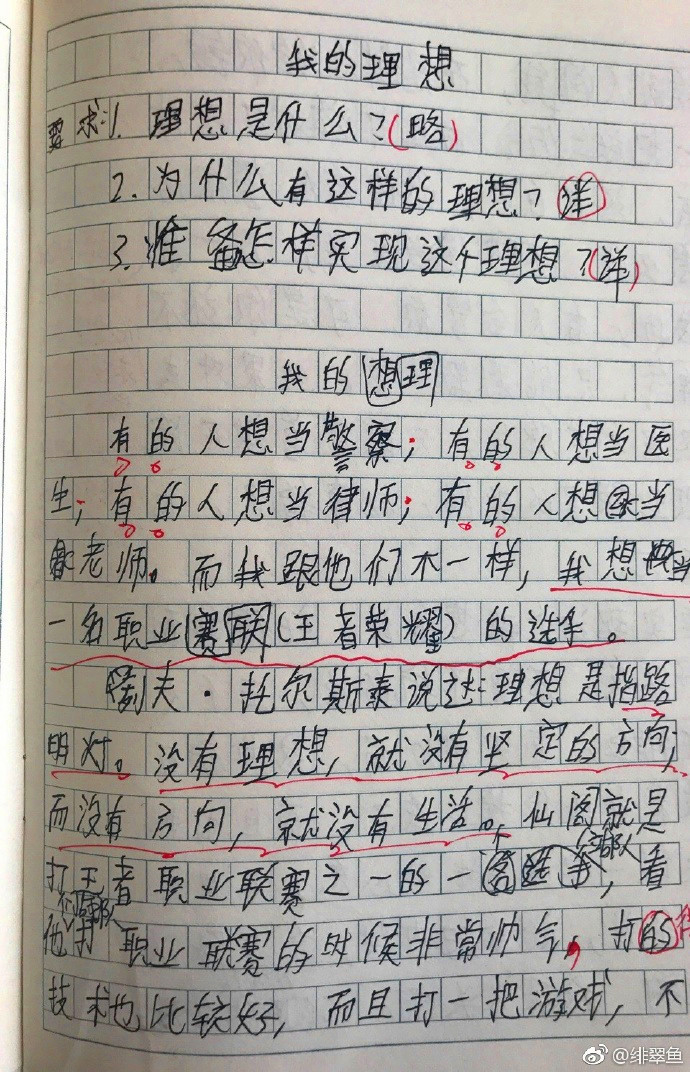 我的理想
要求:1.理想是什么?(略)
2.为什么有这样的理想?(详)
3.准备怎样实现这个理想?(详)
我的想理
有的人想当警察;有的人想当医
生;有的人想当律师;有的人想当
老师。而我跟他们不一样,我想当
一名职业赛联(王者荣耀)的选手。
列夫·托尔斯泰说过:理想是指路
明灯。没有理想,就没有坚定的方向;
而没有方向,就没有生活。仙阁就是
打王者职业联赛之一的一个战队,看
他们战队打职业联赛的时候非常帅气,打的
技术也比较好,而且打一把游戏,不
@绯翠鱼